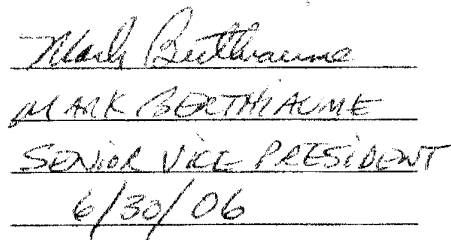 Mark Berthiaume
MARK BERTHIAUME
SENIOR VICE PRESIDENT
6/30/06